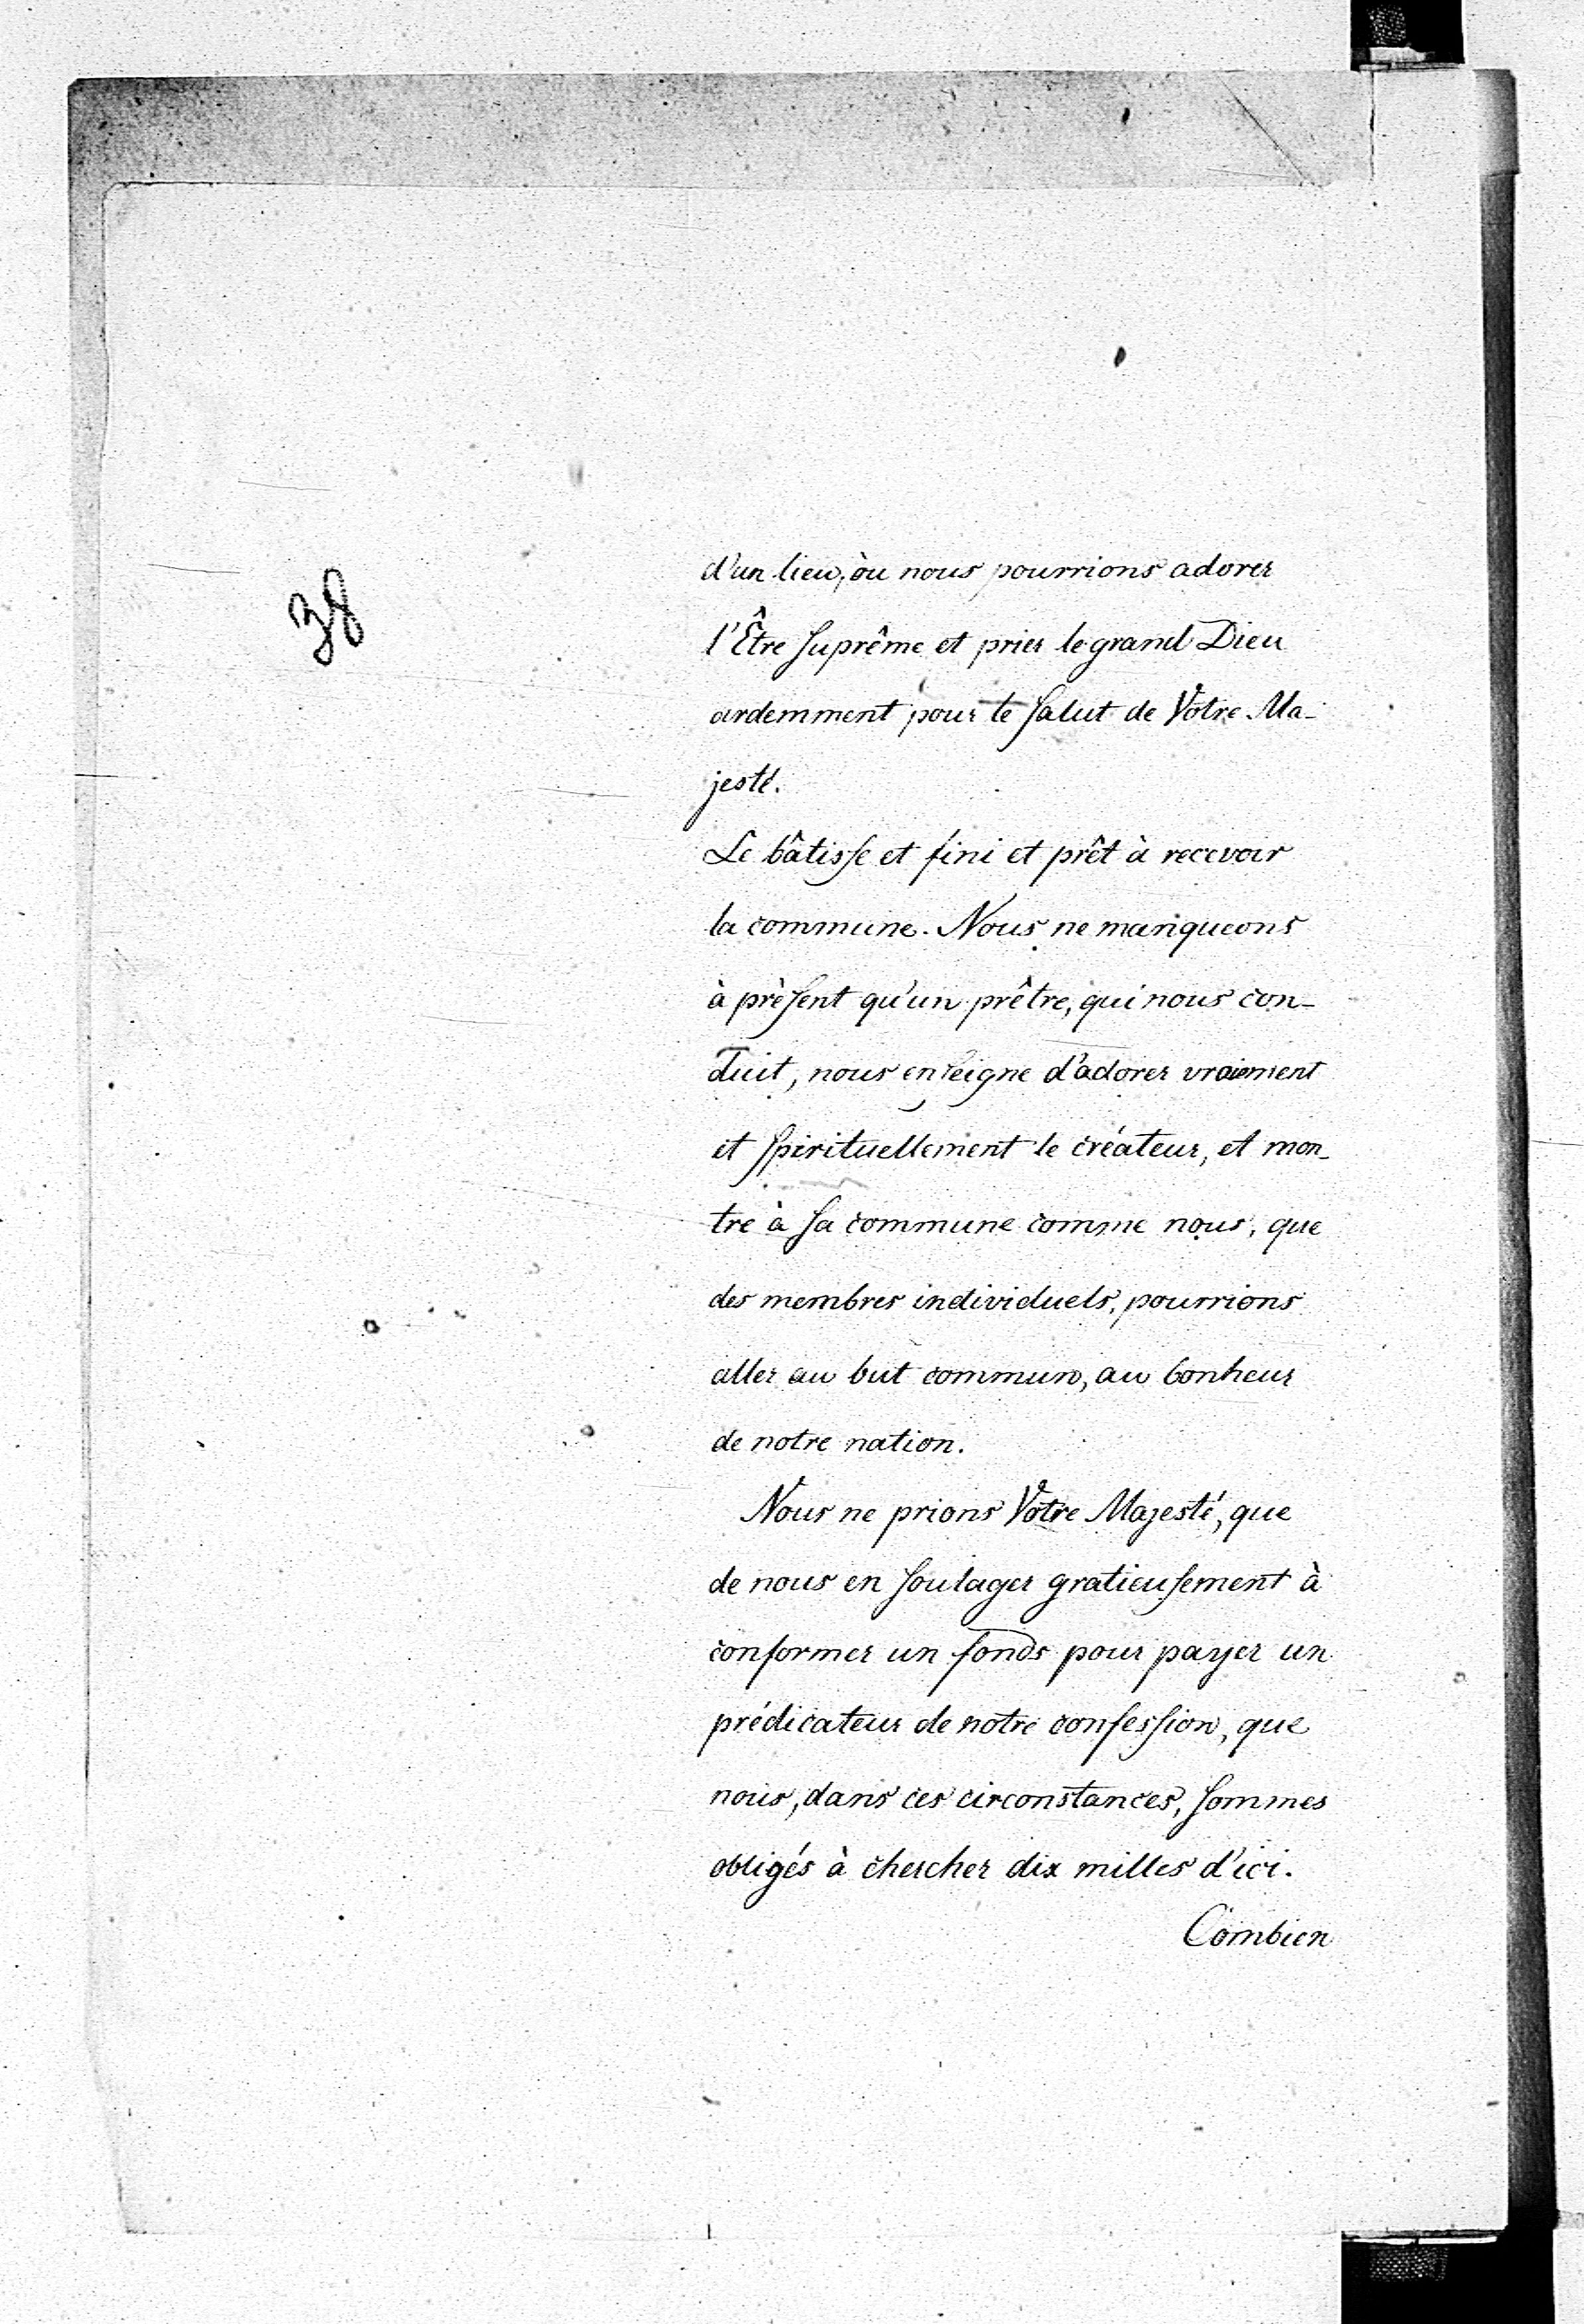 38
d'un lieu, òu nous pourrions adorer
l'Être suprême et prier le grand Dieu
ardemment pour le salut de Votre Ma-
jesté.
Le bâtisse et fini et prêt à recevoir
la commune. Nous ne manqueons
à prèsent qu'un prêtre, qui nous con-
duit, nous enseigne d'adorer vraiement
et spirituellement le créateur, et mon-
tre à sa commune comme nous, que
des membres individuels, pourrions
aller au but commun, au bonheur
de notre nation.
Nous ne prions Votre Majesté, que
de nous en soulager gratieusement à
conformer un fonds pour payer un
prédicateur de notre confession, que
nous, dans ces circonstances, sommes
obligés à chercher dix milles d'ici.
Combien